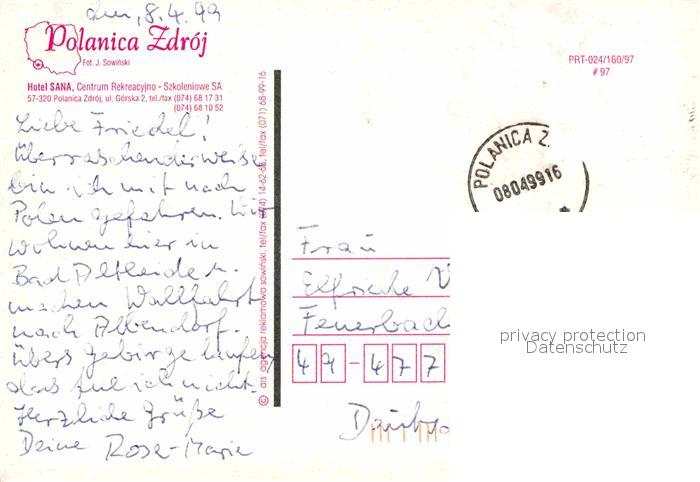 den, 8.4.99
Polanica Zdrój
Fot. J. Sowiński
Hotel SANA, Centrum Rekreacyjno - Szkoleniowe SA
57-320 Polanica Zdrój, ul. Górska 2, tel./fax (074) 68 17 31
(074) 68 10 52
Liebe Friedel!
überraschenderweise
bin ich mit nach
Polen gefahren. Wir
wohnen hier in
Bad Altheide u.
machen Wallfahrt
nach Albendorf.
übers Gebirge laufen
das tue ich nicht.
Herzliche Grüße
Deine Rosa-Maria
© ars agencja reklamowa sowiński, tel/fax (074) 14-62-66, tel/fax (071) 68-99-16
PRT-024/160/97
# 97
POLANICA Z.
08049916
Frau
Elfriede
Feuerbach
49-477
privacy protection
Datenschutz